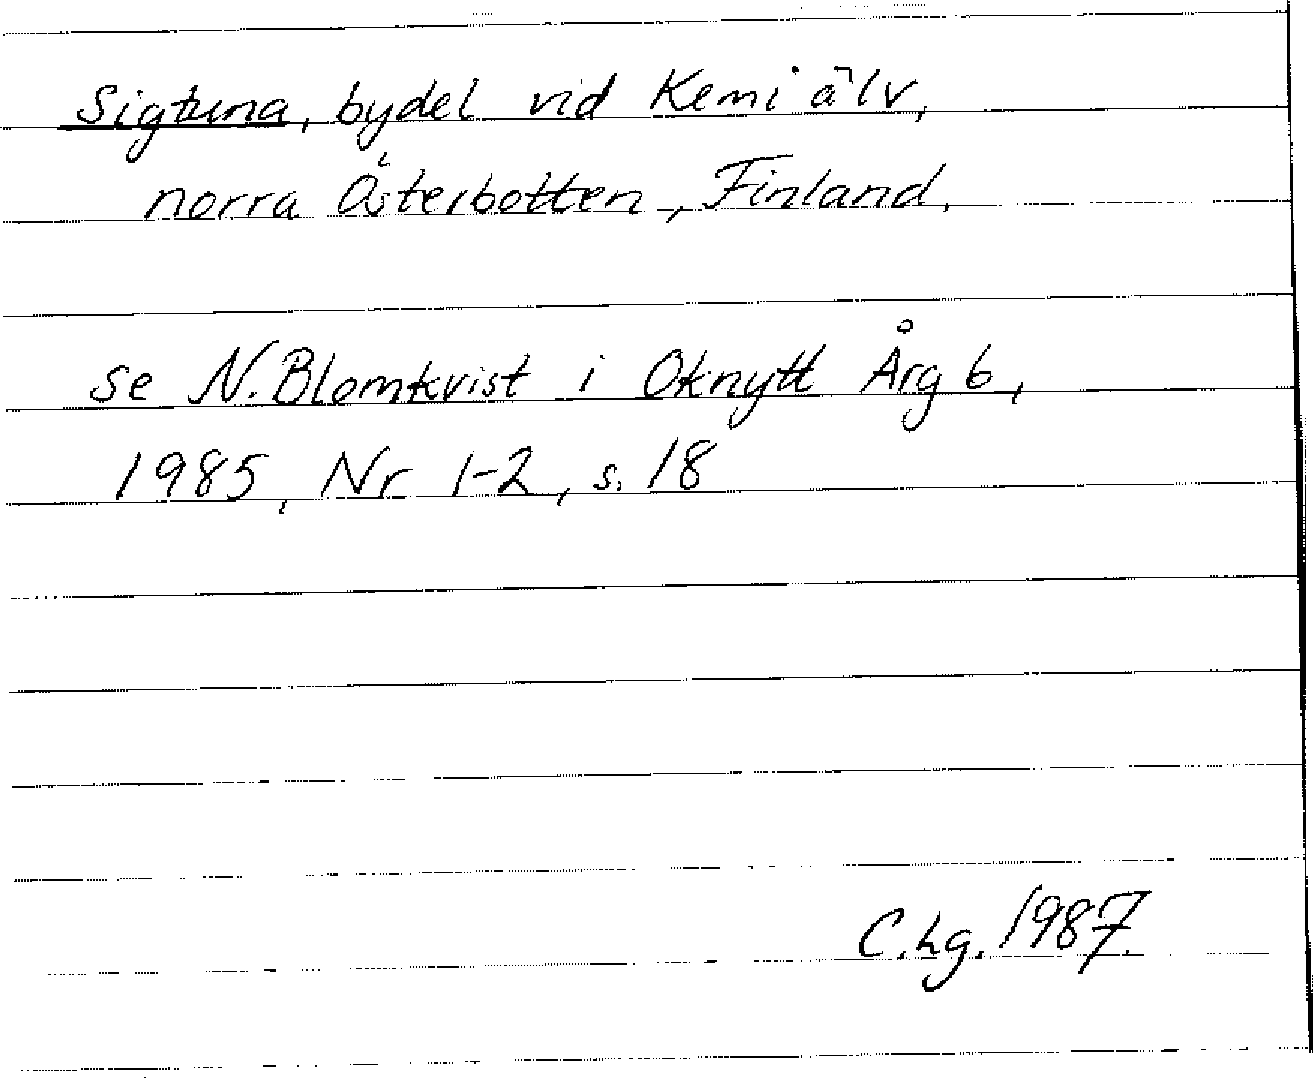 Sigtuna, bydel vid Kemi älv,
norra Österbotten, Finland.
se N. Blomkvist i Oknytt Årg 6,
1985, Nr 1-2, s. 18
C. Lg. 1987.